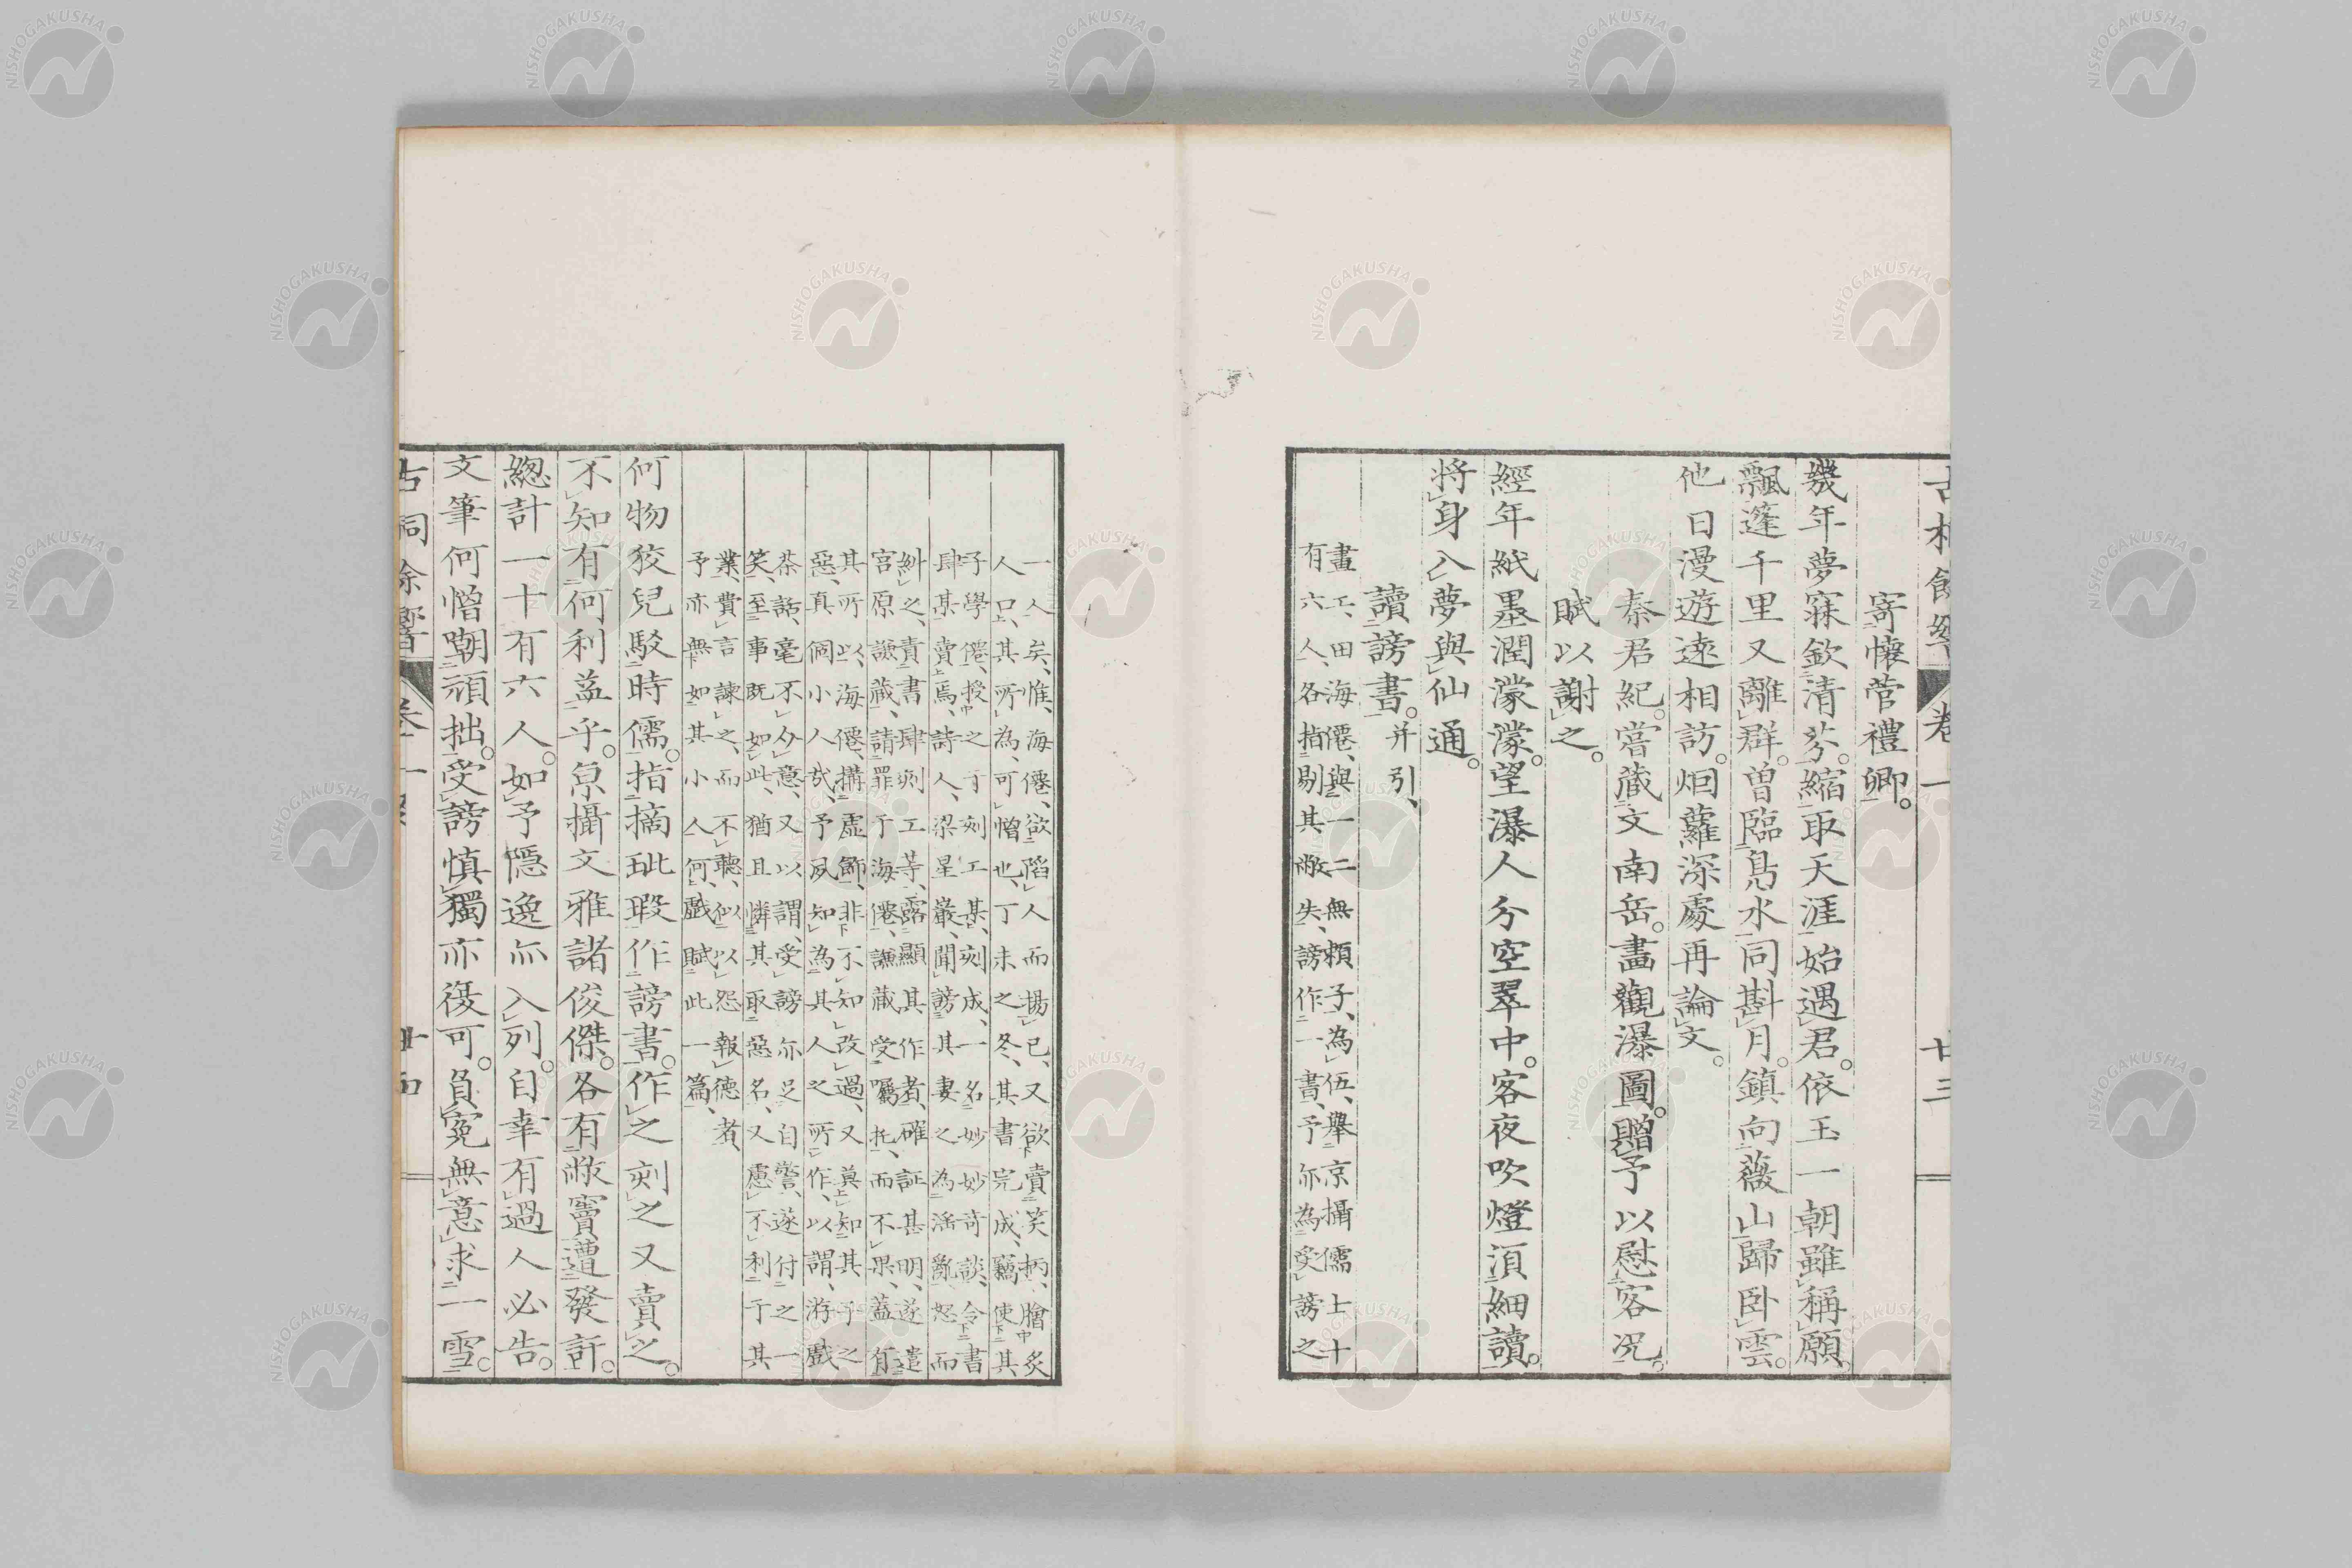 古桐餘響 卷一 廿三
寄懷菅禮卿。
幾年夢寐欽清芬。縮取天涯始遇君。依玉一朝雖稱願。
飄蓬千里又離群。曽臨鳧水同斟月。鎮向薇山歸卧雲。
他日漫遊遠相訪。烟蘿深處再論文。
秦君紀。嘗蔵文南岳。畫觀瀑圖。贈予以慰客况。
賦以謝之。
經年紙墨潤濛濛。望瀑人分空翠中。客夜吹燈湏細讀。
將身入夢與仙通。
讀謗書。并引、
畫工、田海僊、與一二無頼子、為伍、舉京攝儒士十
有六人、各指剔其敝失、謗作一書、予亦為受謗之
一人矣、惟海僊、欲陷人而揚己、又欲賣笑柄、膾炙
人口、其所為、可憎也、丁未之冬、其書完成、竊使其
子學僊、授之于刻工某、刻成、一名妙妙奇談、令書
肆某賣焉、詩人、梁星巌、聞謗其妻之為淫亂、怒而
糾之、責書肆刻工等、露顯其作者、確証甚明、遂遣
宮原謙蔵、請罪于海僊、謙蔵受囑托、而不果、蓋有
其所以、海僊、搆虚飾、非不知改過、又莫知其子之
惡、真個小人哉、予夙知為其人之所作、以謂、游戲
茶話、毫不介意、又以謂、受謗亦足自警、遂付之一
笑、至事既如此、猶且憐其取惡名、又慮不利于其
業、費言諫之、而不聽、似以怨報德者、
予亦無如其小人何、戲賦此一篇、
何物狡兒駁時儒。指摘玼瑕作謗書。作之刻之又賣之。
不知有何利益乎。京攝文雅諸俊傑。各有敝竇遭發訐。
總計一十有六人。如予隱逸亦入列。自幸有過人必告。
文筆何憎嘲頑拙。受謗慎獨亦復可。負冤無意求一雪。
古桐餘響 卷一 廿四